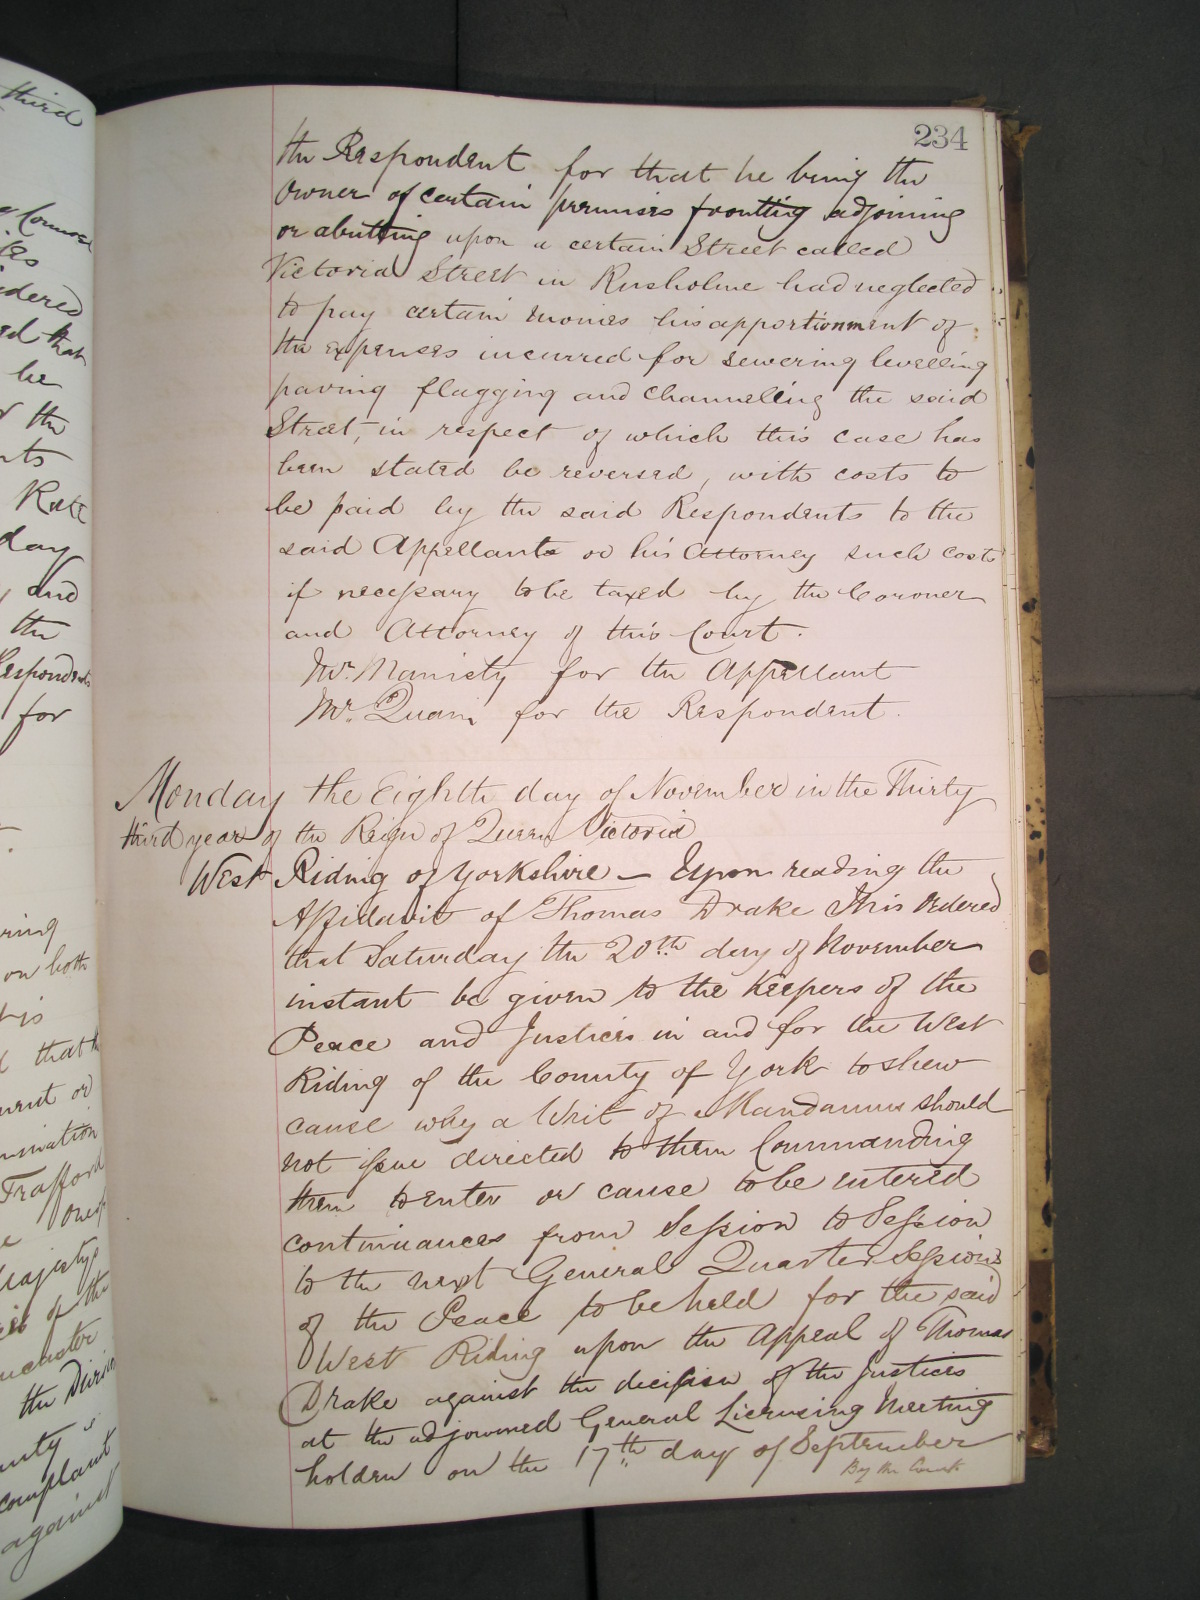 234
the Respondent for that he being the
owner of certain premises fronting adjoining
or abutting upon a certain Street called
Victoria Street in Rusholme had neglected
to pay certain monies his apportionment of
the expenses incurred for sewering levelling
paving flagging and channelling the said
Street, in respect of which this case has
been stated be reversed, with costs to
be paid by the said Respondents to the
said Appellants or his Attorney such costs
if necessary to be taxed by the Coroner
and Attorney of this Court.
Mr. Manisty for the Appellant
Mr. Quain for the Respondent.
Monday the Eighth day of November in the Thirty
third year of the Reign of Queen Victoria
West Riding of Yorkshire — Upon reading the
Affidavit of Thomas Drake It is Ordered
that Saturday the 20th day of November
instant be given to the Keepers of the
Peace and Justices in and for the West
Riding of the County of York to shew
cause why a Writ of Mandamus should
not issue directed to them Commanding
them to enter or cause to be entered
continuances from Session to Session
to the next General Quarter Sessions
of the Peace to be held for the said
West Riding upon the Appeal of Thomas
Drake against the decision of the Justices
at the adjourned General Licensing Meeting
holden on the 17th day of September
By the Court
third
idered
ed that
be
the
Rate
day
and
the
for
on both
that the
Trafford
of the
the
complaint
against